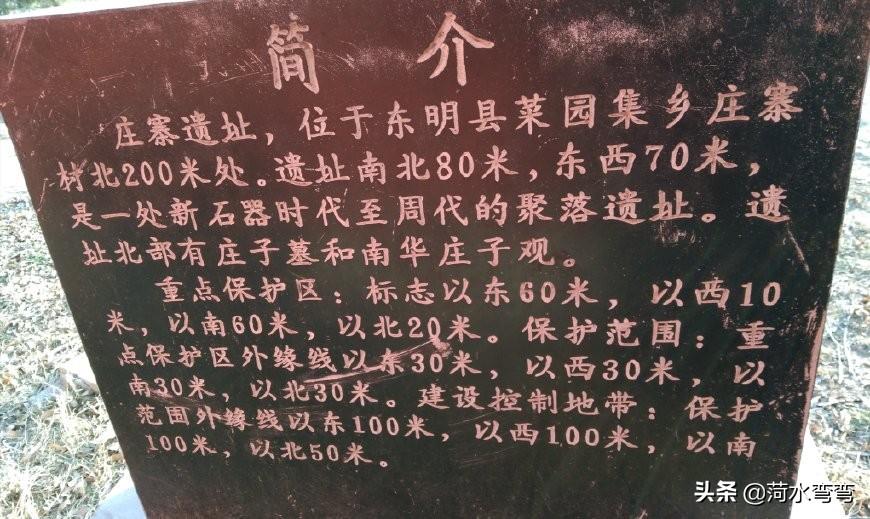 简 介
庄寨遗址，位于东明县菜园集乡庄寨
村北200米处。遗址南北80米，东西70米，
是一处新石器时代至周代的聚落遗址。遗
址北部有庄子墓和南华庄子观。
重点保护区：标志以东60米，以西10
米，以南60米，以北20米。保护范围：重
点保护区外缘线以东30米，以西30米，以
南30米，以北30米。建设控制地带：保护
范围外缘线以东100米，以西100米，以南
100米，以北50米。
头条 @菏水弯弯